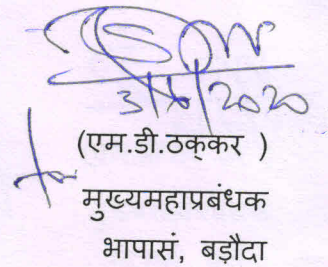 3/6/2020
(एम.डी.ठक्कर )
मुख्यमहाप्रबंधक
भापासं, बड़ौदा